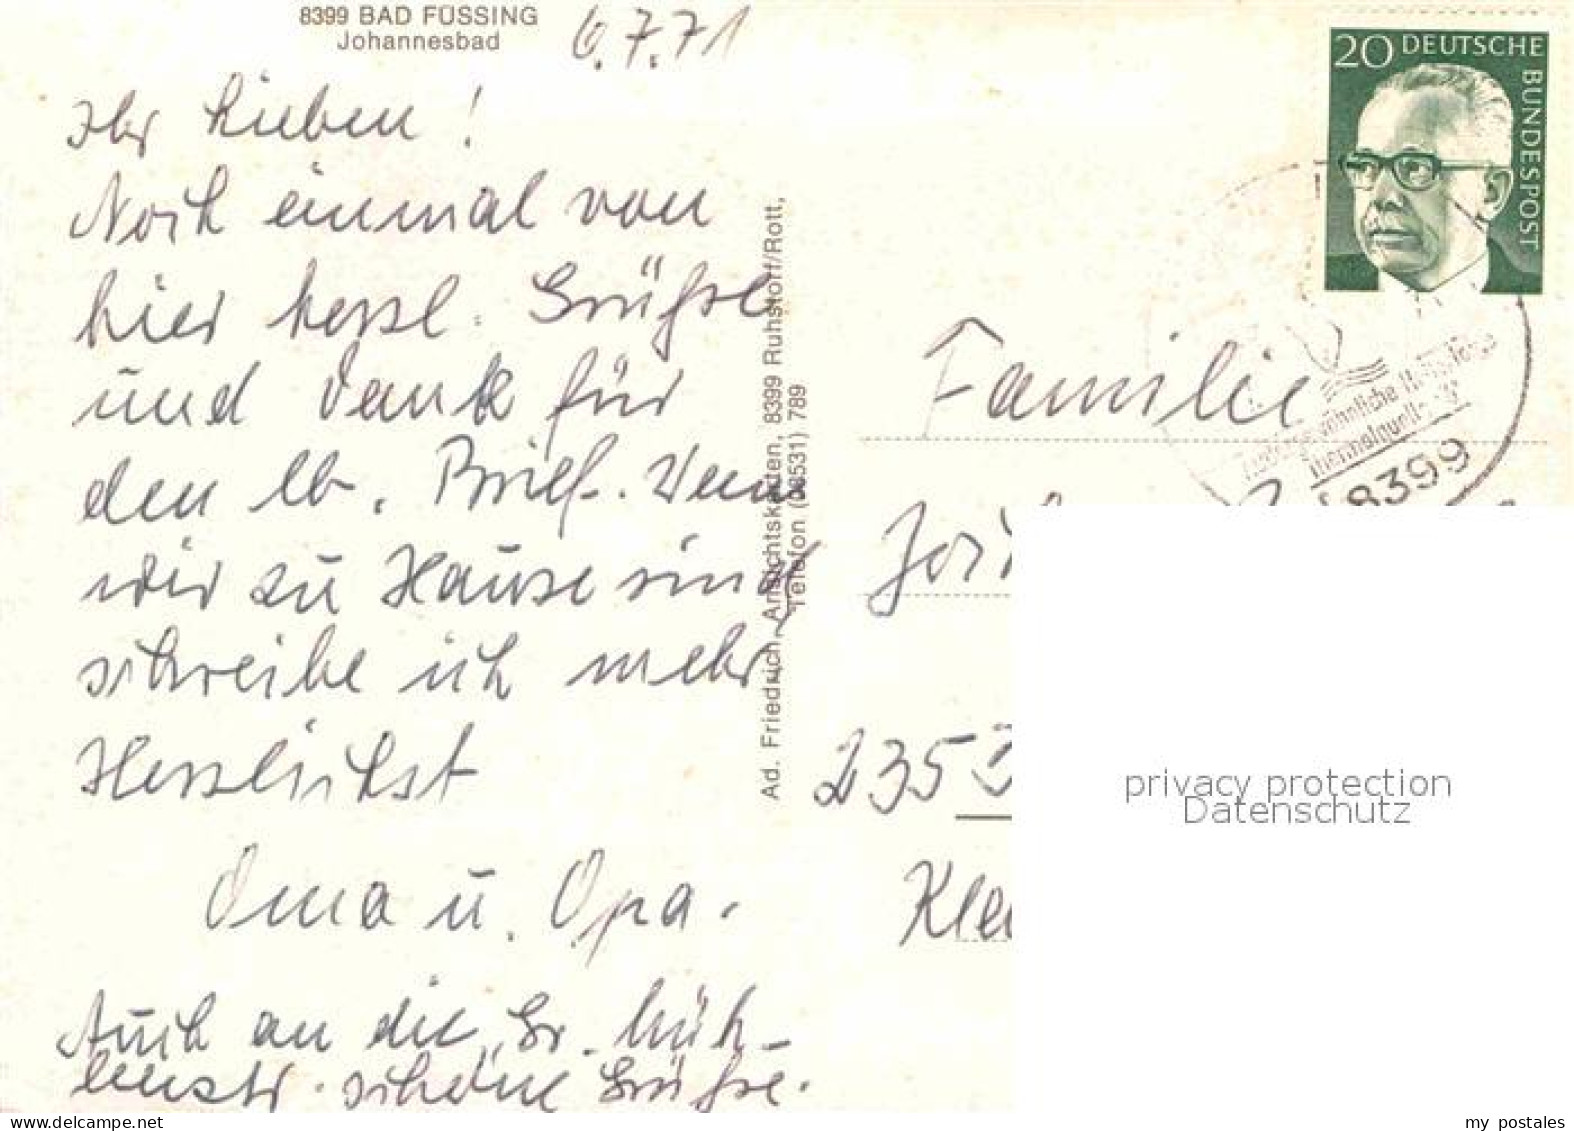 8399 BAD FÜSSING
Johannesbad
6.7.71
Ihr Lieben!
Noch einmal von
hier herzl. Grüße
und Dank für
den lb. Brief. Wenn
wir zu Hause sind
schreibe ich mehr
Herzlichst
Oma u. Opa.
Auch an die Gr.
schöne Grüße.
Ad. Friedrich, Ansichtskarten, 8399 Ruhstorf/Rott,
Telefon (08531) 789
20 DEUTSCHE
BUNDESPOST
Thermalquelle
8399
Familie
235
Kle
privacy protection
Datenschutz
www.delcampe.net
my_postales